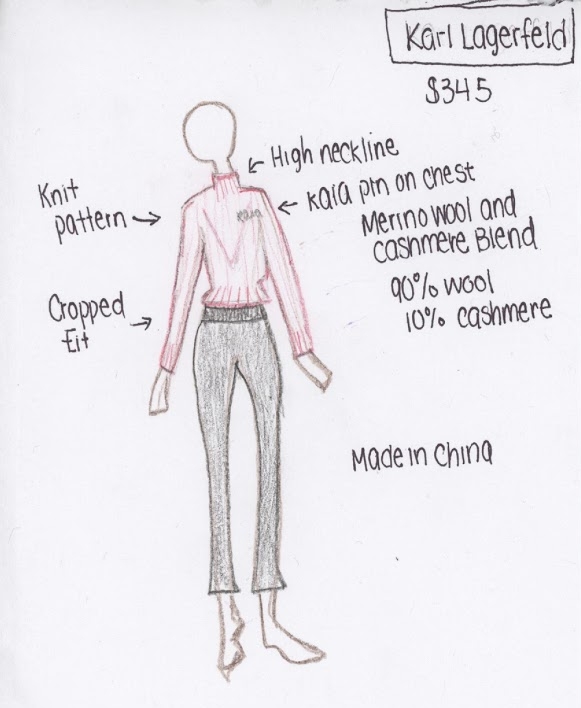 Karl Lagerfeld
$345
High neckline
Kaia pin on chest
Knit
pattern
kaia
Merino wool and
cashmere Blend
90% wool
10% cashmere
Cropped
Fit
Made in China